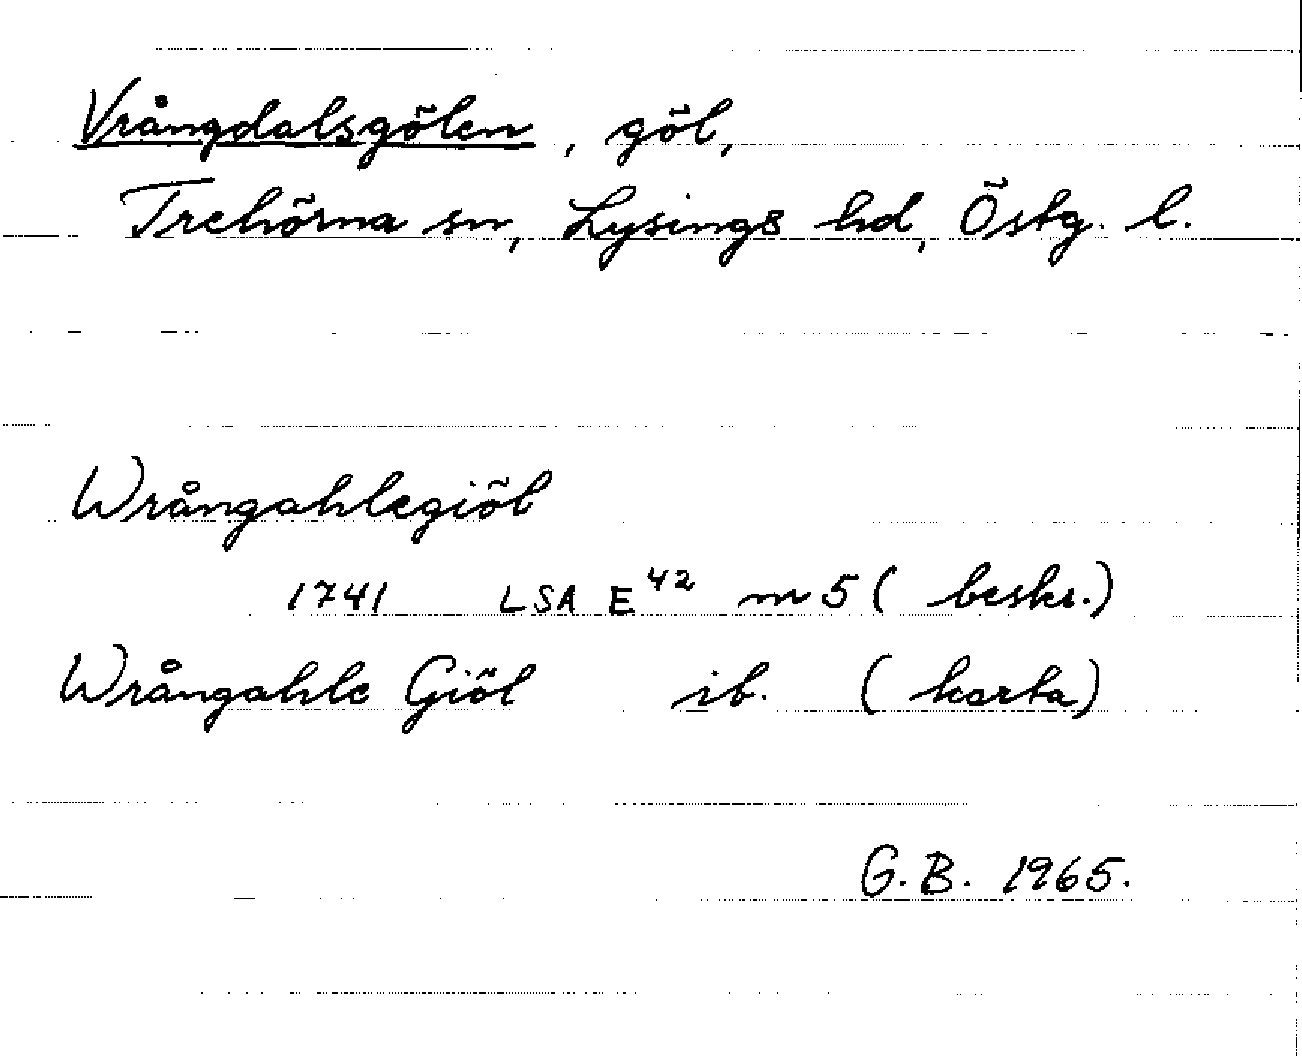 Vrångdalsgölen, göl,
Trehörna sn, Lysings hd, Östg. l.
Wrångahlegiöl
1741 LSA E42 m5 (beskr.)
Wrångahle Giöl ib. (karta)
G.B. 1965.